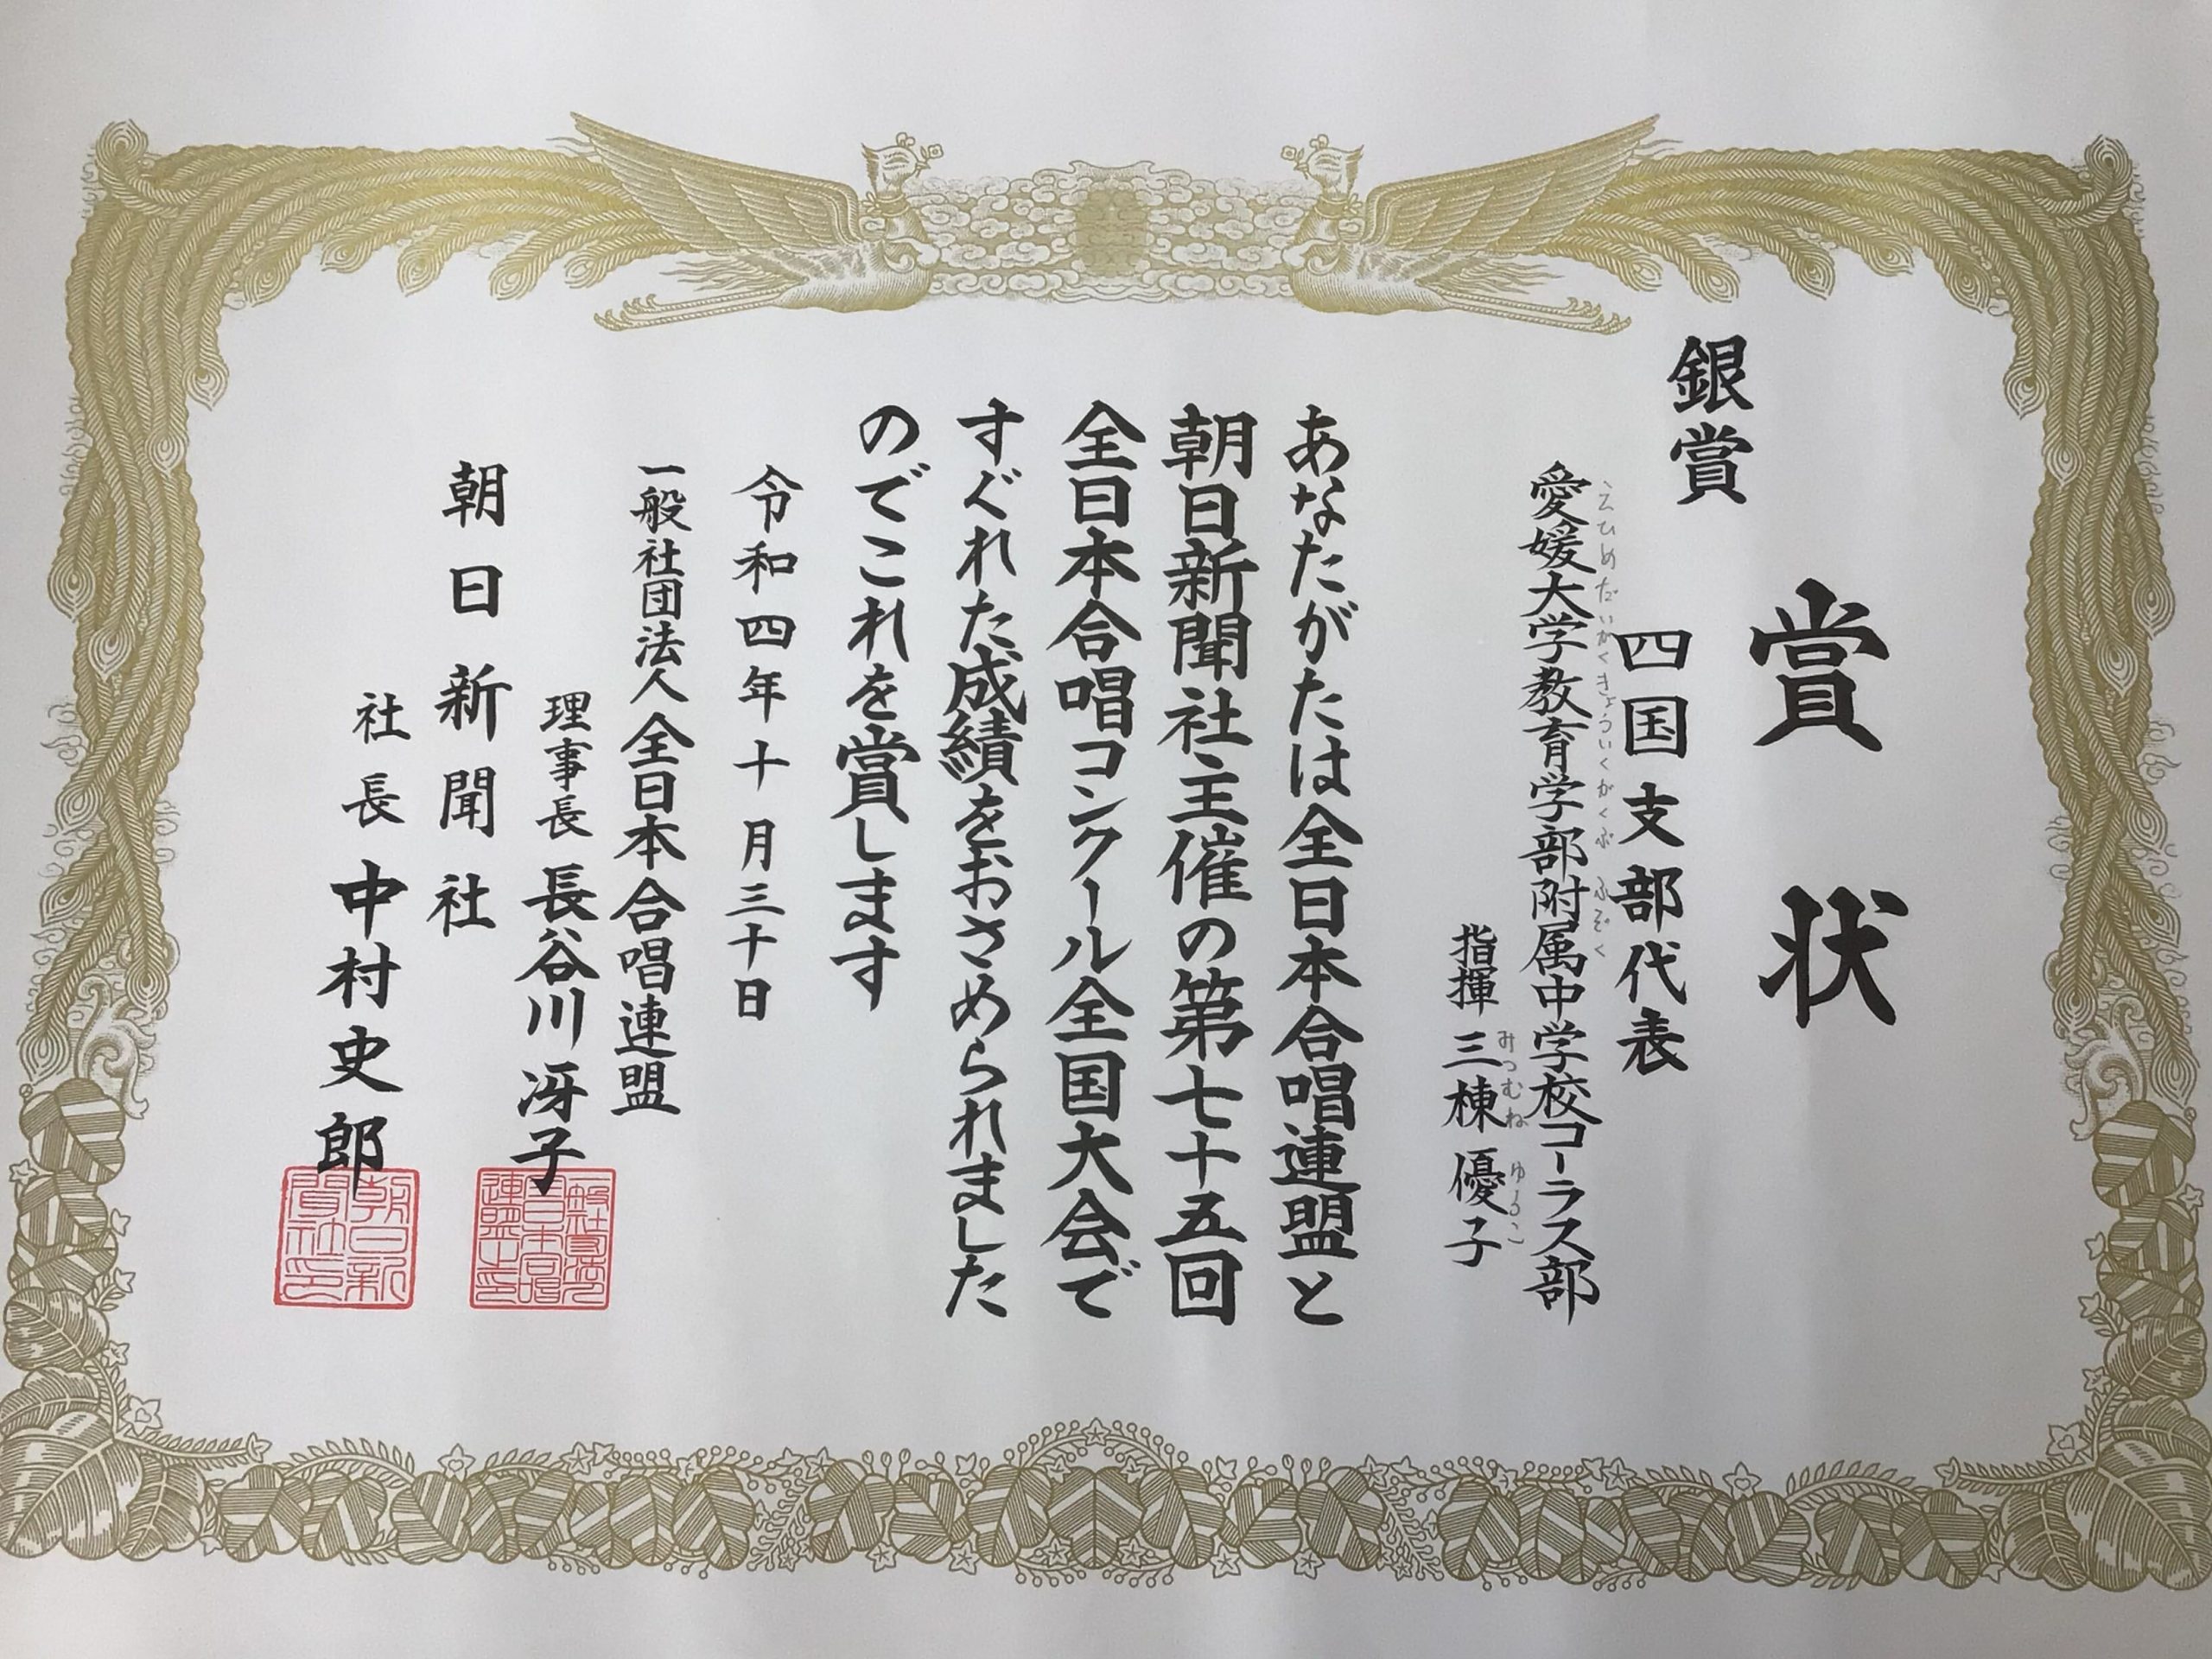 賞状
銀賞
四国支部代表
えひめだいがくきょういくがくぶ ふぞく
愛媛大学教育学部附属中学校コーラス部
みつむね ゆうこ
指揮 三棟 優子
あなたがたは全日本合唱連盟と
朝日新聞社主催の第七十五回
全日本合唱コンクール全国大会で
すぐれた成績をおさめられました
のでこれを賞します
令和四年十月三十日
一般社団法人全日本合唱連盟
理事長 長谷川冴子
朝日新聞社
社長 中村史郎
朝日新聞社印